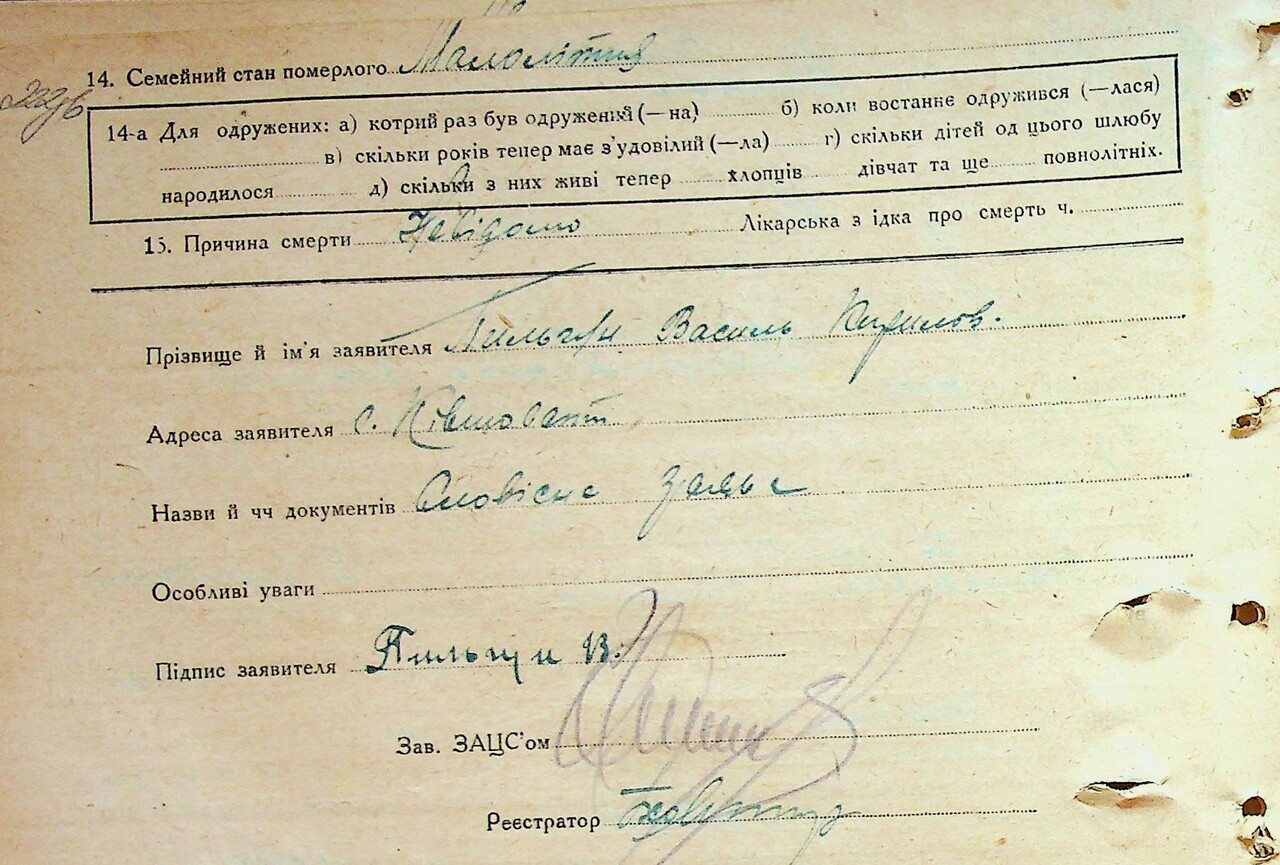 14. Семейний стан померлого Малолітня
14-а Для одружених: а) котрий раз був одружений (—на) б) коли востаннє одружився (—лася)
в) скільки років тепер має з'удовілий (—ла) г) скільки дітей од цього шлюбу
народилося д) скільки з них живі тепер хлопців дівчат та ще повнолітніх.
15. Причина смерти Невідомо Лікарська з ідка про смерть ч.
Прізвище й ім'я заявителя Пильгун Василь Кирилов.
Адреса заявителя с.
Назви й чч документів Словісна заява
Особливі уваги
Підпис заявителя В.
Зав. ЗАЦС'ом
Реєстратор